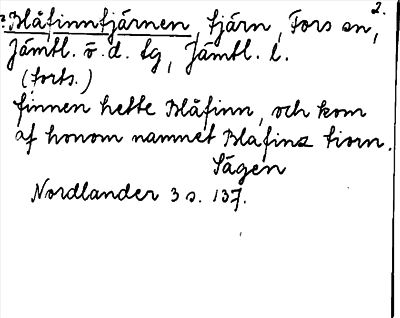 2.
Blåfinntjärnen, tjärn, Fors sn,
Jämtl. ö. d. tg, Jämtl. l.
(forts.)
finnen hette Blåfinn, och kom
af honom namnet Blafins tiorn.
Sägen
Nordlander 3 s. 137.